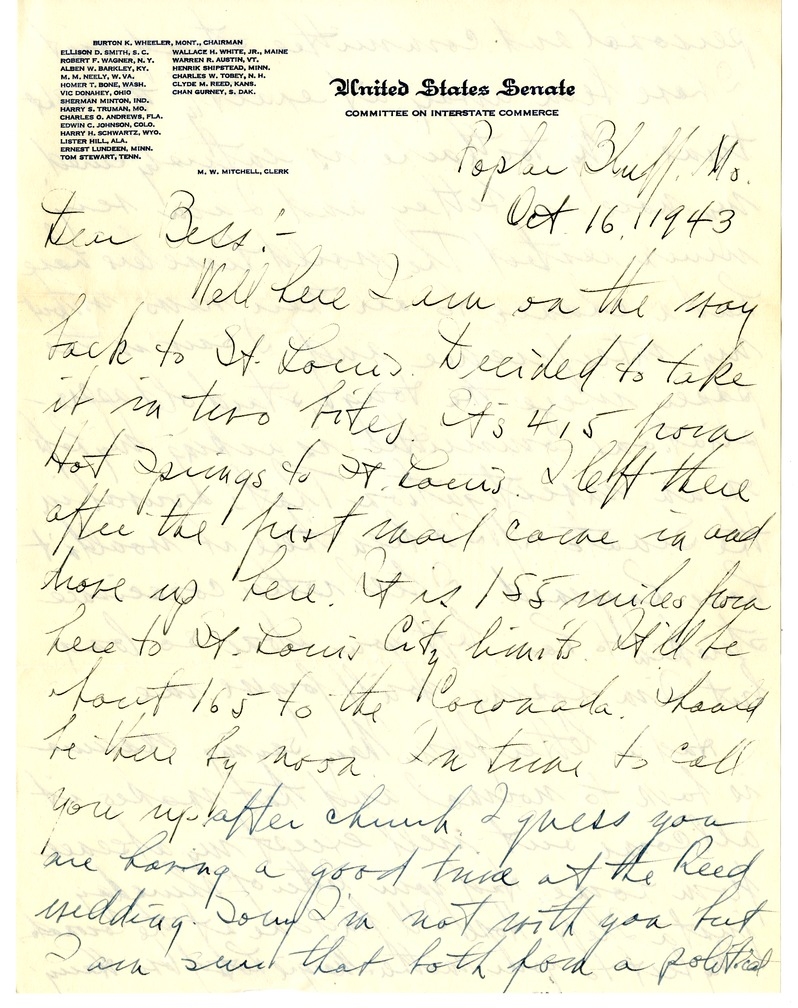 BURTON K. WHEELER, MONT., CHAIRMAN
ELLISON D. SMITH, S. C.
ROBERT F. WAGNER, N. Y.
ALBEN W. BARKLEY, KY.
M. M. NEELY, W. VA.
HOMER T. BONE, WASH.
VIC DONAHEY, OHIO
SHERMAN MINTON, IND.
HARRY S. TRUMAN, MO.
CHARLES O. ANDREWS, FLA.
EDWIN C. JOHNSON, COLO.
HARRY H. SCHWARTZ, WYO.
LISTER HILL, ALA.
ERNEST LUNDEEN, MINN.
TOM STEWART, TENN.
WALLACE H. WHITE, JR., MAINE
WARREN R. AUSTIN, VT.
HENRIK SHIPSTEAD, MINN.
CHARLES W. TOBEY, N. H.
CLYDE M. REED, KANS.
CHAN GURNEY, S. DAK.
M. W. MITCHELL, CLERK
United States Senate
COMMITTEE ON INTERSTATE COMMERCE
Poplar Bluff, Mo.
Oct. 16, 1943
Dear Bess:-
Well here I am on the way
back to St. Louis. Decided to take
it in two bites. It's 415 from
Hot Springs to St. Louis. I left there
after the first mail came in and
drove up here. It is 155 miles from
here to St. Louis City limits. It'll be
about 165 to the Coronado. Should
be there by noon. In time to call
you up after church. I guess you
are having a good time at the Reed
wedding. Sorry I'm not with you but
I am sure that both from a political